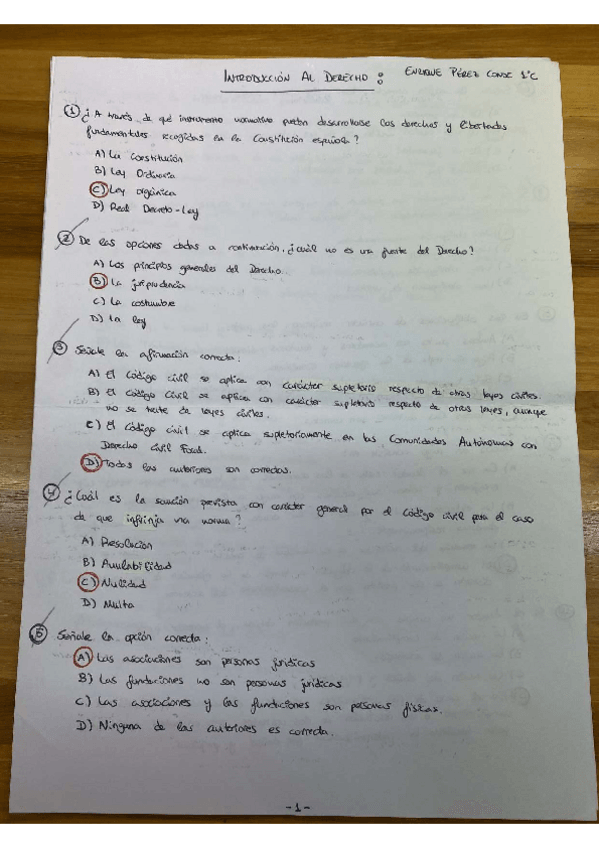 INTRODUCCIÓN AL DERECHO: ENRIQUE PÉREZ CONDE 1ºC
① ¿A través de qué instrumento normativo pueden desarrollarse los derechos y libertades
fundamentales recogidas en la Constitución española?
A) La Constitución
B) Ley Ordinaria
C) Ley orgánica
D) Real Decreto-Ley
② De las opciones dadas a continuación, ¿cuál no es una fuente del Derecho?
A) Los principios generales del Derecho.
B) La jurisprudencia
C) La costumbre
D) La ley
③ Señale la afirmación correcta:
A) El Código civil se aplica con carácter supletorio respecto de otras leyes civiles.
B) El Código Civil se aplica con carácter supletorio respecto de otras leyes, aunque
no se trate de leyes civiles.
C) El Código civil se aplica supletoriamente en las Comunidades Autónomas con
Derecho civil Foral.
D) Todas las anteriores son correctas.
④ ¿Cuál es la sanción prevista con carácter general por el Código civil para el caso
de que infrinja una norma?
A) Resolución
B) Anulabilidad
C) Nulidad
D) Multa
⑤ Señale la opción correcta:
A) Las asociaciones son personas jurídicas
B) Las fundaciones no son personas jurídicas
C) Las asociaciones y las fundiciones son personas físicas.
D) Ninguna de las anteriores es correcta.
-1-